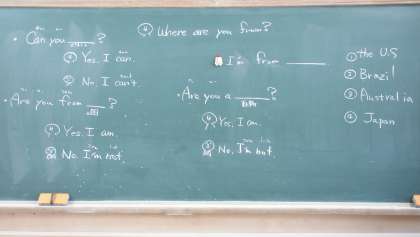 ・Can you ____?
Ⓐ Yes, I can.
No, I can't
・Are you from ____?
国
Ⓐ Yes, I am.
No. I'm not.
Where are you from?
I'm from ____.
・Are you a ____?
Yes, I am.
No, I'm not.
① the U.S
② Brazil
③ Australia
④ Japan